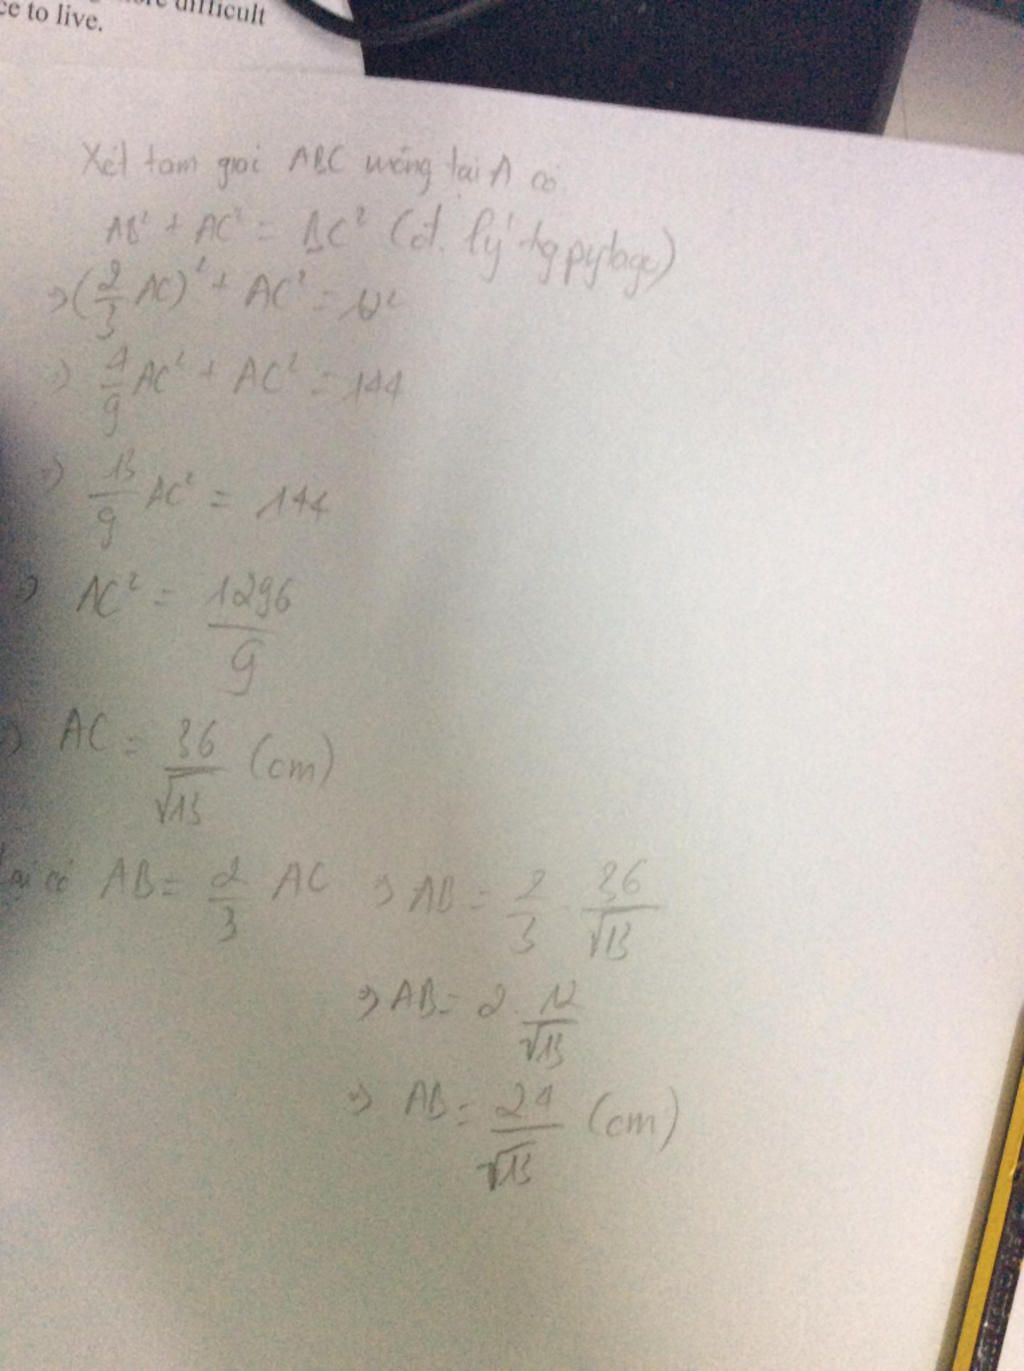 difficult
ce to live.
Xét tam giác ABC vuông tại A có
AB² + AC² = BC² (đ. lý tg pytago)
⇒ (2/3 AC)² + AC² = 12²
⇒ 4/9 AC² + AC² = 144
⇒ 13/9 AC² = 144
⇒ AC² = 1296/9
⇒ AC = 36/√13 (cm)
lại có AB = 2/3 AC ⇒ AB = 2/3 . 36/√13
⇒ AB = 2 . 12/√13
⇒ AB = 24/√13 (cm)